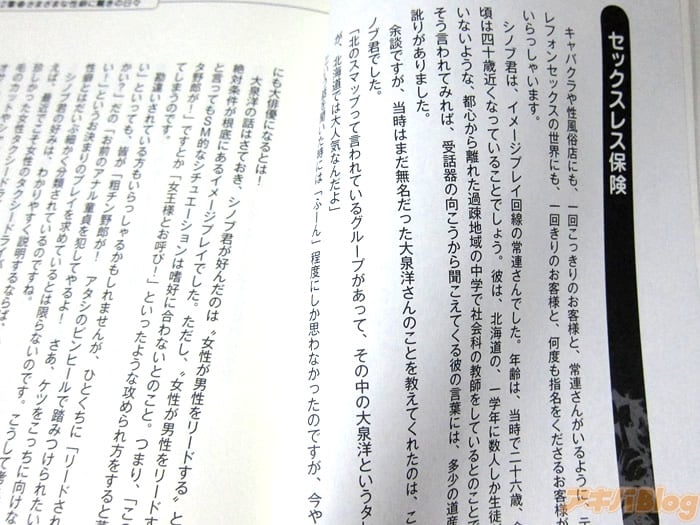 セックスレス保険
キャバクラや性風俗店にも、一回こっきりのお客様と、常連さんがいるように、テ
レフォンセックスの世界にも、一回きりのお客様と、何度も指名をくださるお客様が
いらっしゃいます。
シノブ君は、イメージプレイ回線の常連さんでした。年齢は、当時で二十六歳、今
頃は四十歳近くなっていることでしょう。彼は、北海道の、一学年に数人しか生徒が
いないような、都心から離れた過疎地域の中学で社会科の教師をしているとのことで
そう言われてみれば、受話器の向こうから聞こえてくる彼の言葉には、多少の道産
訛りがありました。
余談ですが、当時はまだ無名だった大泉洋さんのことを教えてくれたのは、こ
ノブ君でした。
「北のスマップって言われているグループがあって、その中の大泉洋というター
が、北海道では大人気なんだよ」
聞いた時には「ふーん」程度にしか思わなかったのですが、今や
にも大俳優になるとは！
大泉洋の話はさておき、シノブ君が好んだのは〝女性が男性をリードする〟と
絶対条件が根底にあるイメージプレイでした。ただし、〝女性が男性をリードする〟
と言ってもSM的なシチュエーションは嗜好に合わないとのこと。つまり、「こ
タ野郎が！」ですとか「女王様とお呼び！」といったような攻められ方をすると萎
てしまうのです。
勘違いされている方もいらっしゃるかもしれませんが、ひとくちに「リードされ
い」といっても、皆が「粗チン野郎が！　アタシのピンヒールで踏みつけられたい
かい？」だの「お前のアナル童貞を犯してやるよ！　さあ、ケツをこっちに向けな
い！」というお決まりのプレイを求めているとは限らないのですね。
性癖とはだいぶ細かく分類されているのです。こうして考
シノブ君の好みは、わかりやすく説明するならば、
えば、最近でこそ女性のタクシードライバ
珍しかった女性タクシードライ
さまざまな性癖に驚きの日々
アキバBlog